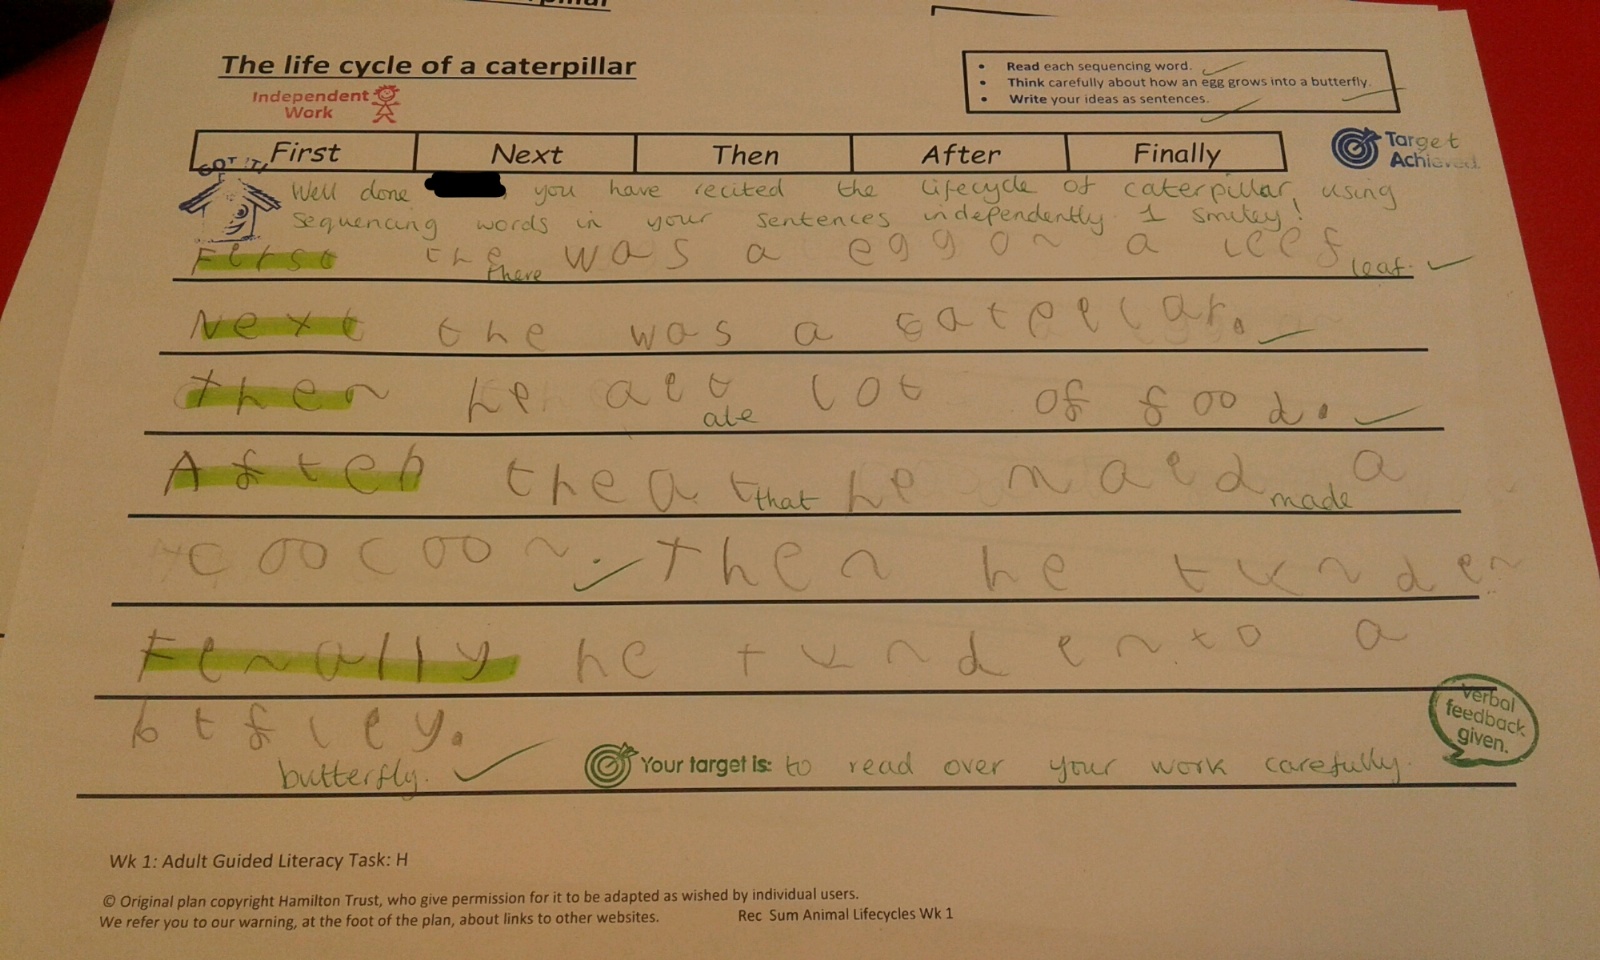 The life cycle of a caterpillar
Independent
Work
• Read each sequencing word.
• Think carefully about how an egg grows into a butterfly.
• Write your ideas as sentences.
First Next Then After Finally
GOT IT!
Target
Achieved
Well done you have recited the lifecycle of caterpillar, using
sequencing words in your sentences independently. 1 smiley!
First the was a egg on a leef
there leaf.
Next the was a catpelar.
Then he aet lot of food.
ate
After theat he maed a
that made
coocoon. Then he tunden
Fenally he tund ento a
btfley.
butterfly.
Your target is: to read over your work carefully.
Verbal
feedback
given.
Wk 1: Adult Guided Literacy Task: H
© Original plan copyright Hamilton Trust, who give permission for it to be adapted as wished by individual users.
We refer you to our warning, at the foot of the plan, about links to other websites. Rec Sum Animal Lifecycles Wk 1